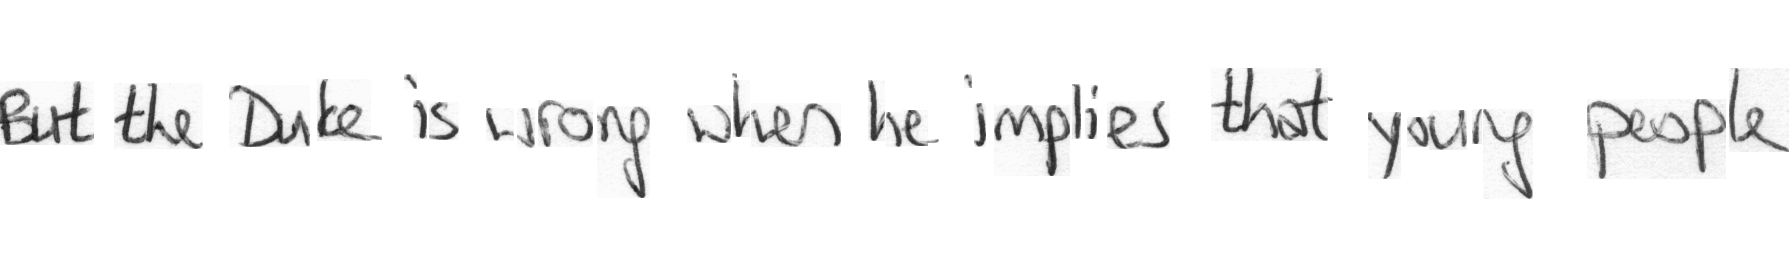 But the Duke is wrong when he implies that young people